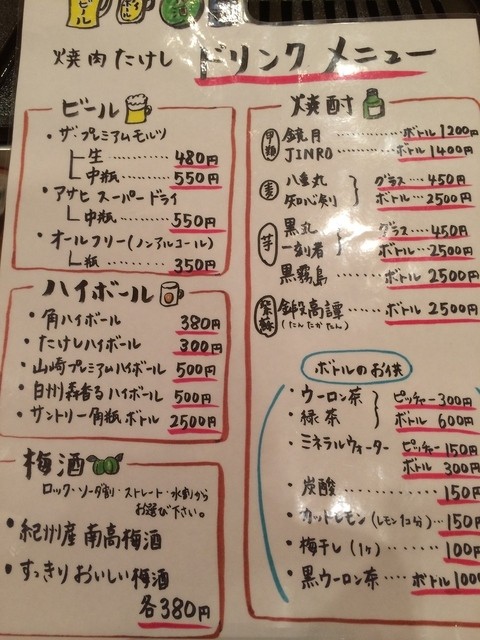 焼肉たけし ドリンクメニュー
ビール
・ザ・プレミアムモルツ
生………480円
中瓶………550円
・アサヒスーパードライ
中瓶………550円
・オールフリー(ノンアルコール)
瓶………350円
ハイボール
・角ハイボール 380円
・たけしハイボール 300円
・山崎プレミアムハイボール 500円
・白州森香るハイボール 500円
・サントリー角瓶ボトル 2500円
梅酒
ロック・ソーダ割・ストレート・水割から
お選び下さい。
・紀州産南高梅酒
・すっきりおいしい梅酒
各380円
焼酎
甲類 鏡月………ボトル1200円
JINRO………ボトル1400円
麦 八重丸 グラス…450円
知心剣 ボトル…2500円
芋 黒丸 グラス…450円
一刻者 ボトル…2500円
黒霧島………ボトル2500円
紫蘇 鍛高譚………ボトル2500円
(たんたかたん)
ボトルのお供
・ウーロン茶 ピッチャー300円
・緑茶 ボトル600円
・ミネラルウォーター ピッチャー150円
ボトル300円
・炭酸………150円
・カットレモン(レモン1コ分)…150円
・梅干し(1ケ)………100円
・黒ウーロン茶…ボトル100